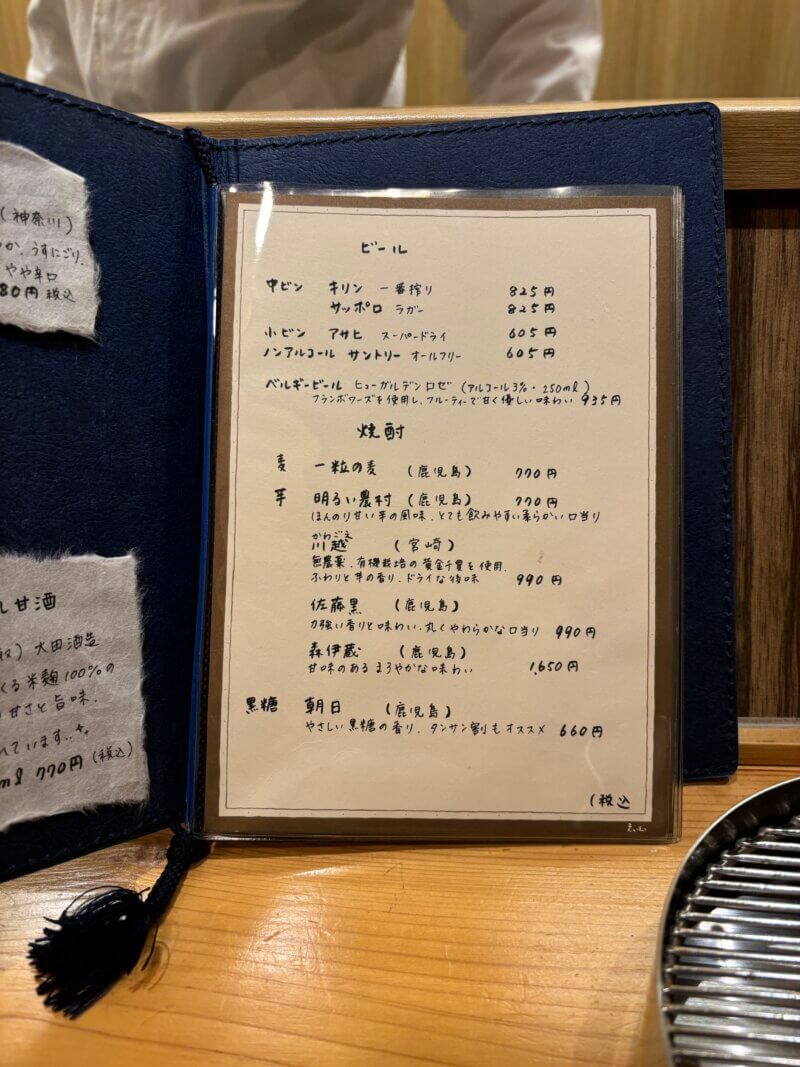 (神奈川)
か、うすにごり、
やや辛口
80円 税込
し甘酒
) 大田酒造
くる米麹100%の
甘さと旨味、
れています..
ml 770円 (税込)
ビール
中ビン キリン 一番搾り 825円
サッポロ ラガー 825円
小ビン アサヒ スーパードライ 605円
ノンアルコール サントリー オールフリー 605円
ベルギービール ヒューガルデンロゼ (アルコール3%・250ml)
フランボワーズを使用し、フルーティーで甘く優しい味わい 935円
焼酎
麦 一粒の麦 (鹿児島) 770円
芋 明るい農村 (鹿児島) 770円
ほんのり甘い芋の風味、とても飲みやすい柔らかい口当り
かわごえ
川越 (宮崎)
無農薬、有機栽培の黄金千貫を使用、
ふわりと芋の香り、ドライな後味 990円
佐藤黒 (鹿児島)
力強い香りと味わい、丸くやわらかな口当り 990円
森伊蔵 (鹿児島)
甘味のあるまろやかな味わい 1,650円
黒糖 朝日 (鹿児島)
やさしい黒糖の香り、タンサン割もオススメ 660円
(税込